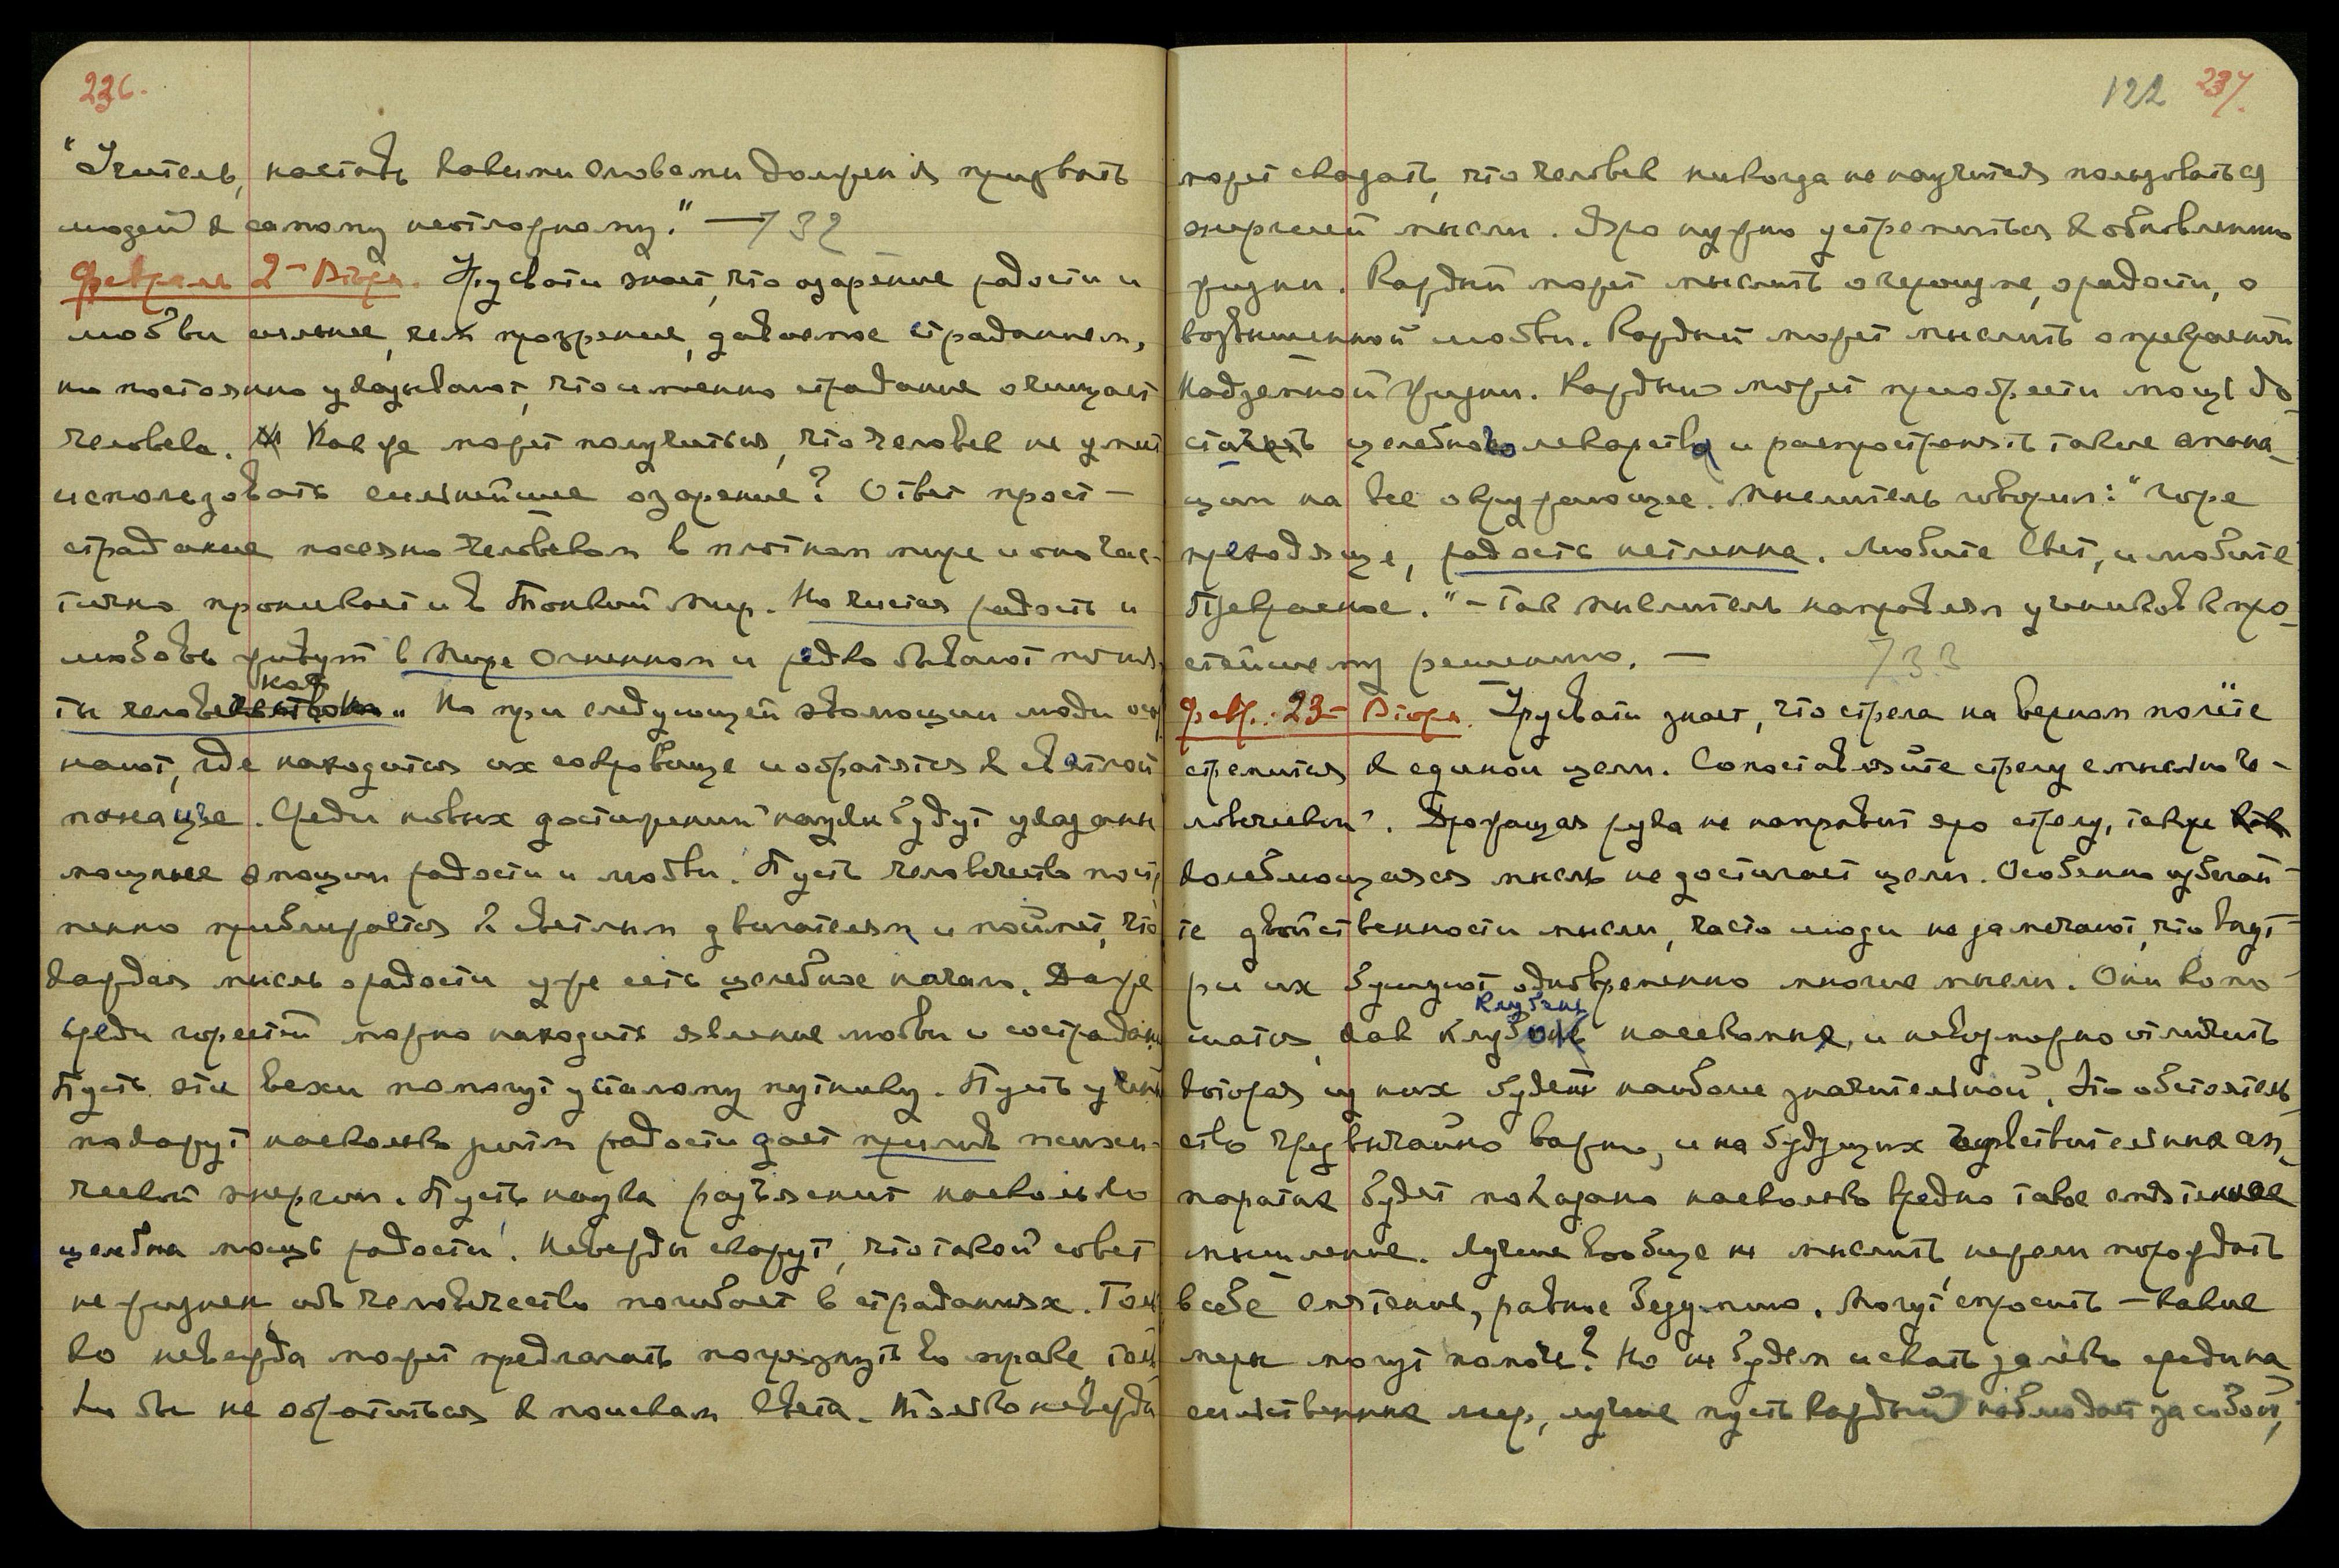 236.
"Учитель, наставь какими словами должен я призвать
людей к самому неотложному." — 732
Февраль 2 – Вторн. Урусвати знает, что озарение радости и
любви сильнее, чем прозрение, даваемое страданием,
но постоянно указывают, что именно страдание очищает
человека. Как же может получиться, что человек не умеет
использовать сильнейшее озарение? Ответ прост —
страдание посеяно человеком в плотном мире и оно час-
тично проникает и в Тонкий Мир. Но чистая радость и
любовь живут в Мире Огненном и редко бывают поня-
ты человеком. Но при следующей эволюции люди
нают, где находится их сокровище и обратятся к светлой
понацее. Среди новых достижений науки будут указаны
мощные эмоции радости и любви. Пусть человечество пост
пенно приближается к светлым двигателям и поймет, что
каждая мысль о радости уже есть целебное начало. Даже
среди горестей можно находить явление любви и сострадани
Пусть эти вехи помогут усталому путнику. Пусть
покажут насколько ритм радости дает прилив психи-
ческой энергии. Пусть наука разъяснит насколько
целебна мощь радости. Невежды скажут, что такой совет
не жизнен, ибо человечество погибает в страданиях. Толь
ко невежда может предлагать погрязнуть во прахе толь
ко бы не обратиться к поискам Света. Только невежда
122 237.
может сказать, что человек никогда не научится пользоваться
энергией мысли. Яро нужно устремиться к обновлению
жизни. Каждый может мыслить о хорошем, о радости, о
возвышенной любви. Каждый может мыслить о прекрасной
Надземной Жизни. Каждый может приобрести мощь до-
стигать целебного лекарства и распространять такие эмана-
ции на все окружающее. Мыслитель говорил: "Горе
преходяще, радость нетленна. Любите Свет, и любите
Прекрасное." – Так Мыслитель направлял учеников к про-
стейшему решению. — 733
Февр. 23 – Вторн. Урусвати знает, что стрела на верном полёте
стремится к единой цели. Сопоставляйте стрелу с мыслью че-
ловеческой. Дрожащая рука не направит яро стрелу, также
колеблющаяся мысль не достигает цели. Особенно избегай-
те двойственности мысли, часто люди не замечают, что внут-
ри их бушуют одновременно многие мысли. Они копо-
клубень
шатся, как насекомые, и невозможно отличить
которая из них будет наиболее значительной. Это обстоятель-
ство чрезвычайно важно, и на будущих чувствительных ап-
паратах будет показано насколько вредно такое смятенное
мышление. Лучше вообще не мыслить нежели порождать
в себе смятение, равное безумию. Могут спросить — какие
меры могут помочь? Но не будем искать далеко среди на
сильственных мер, лучше пусть каждый наблюдает за собой,